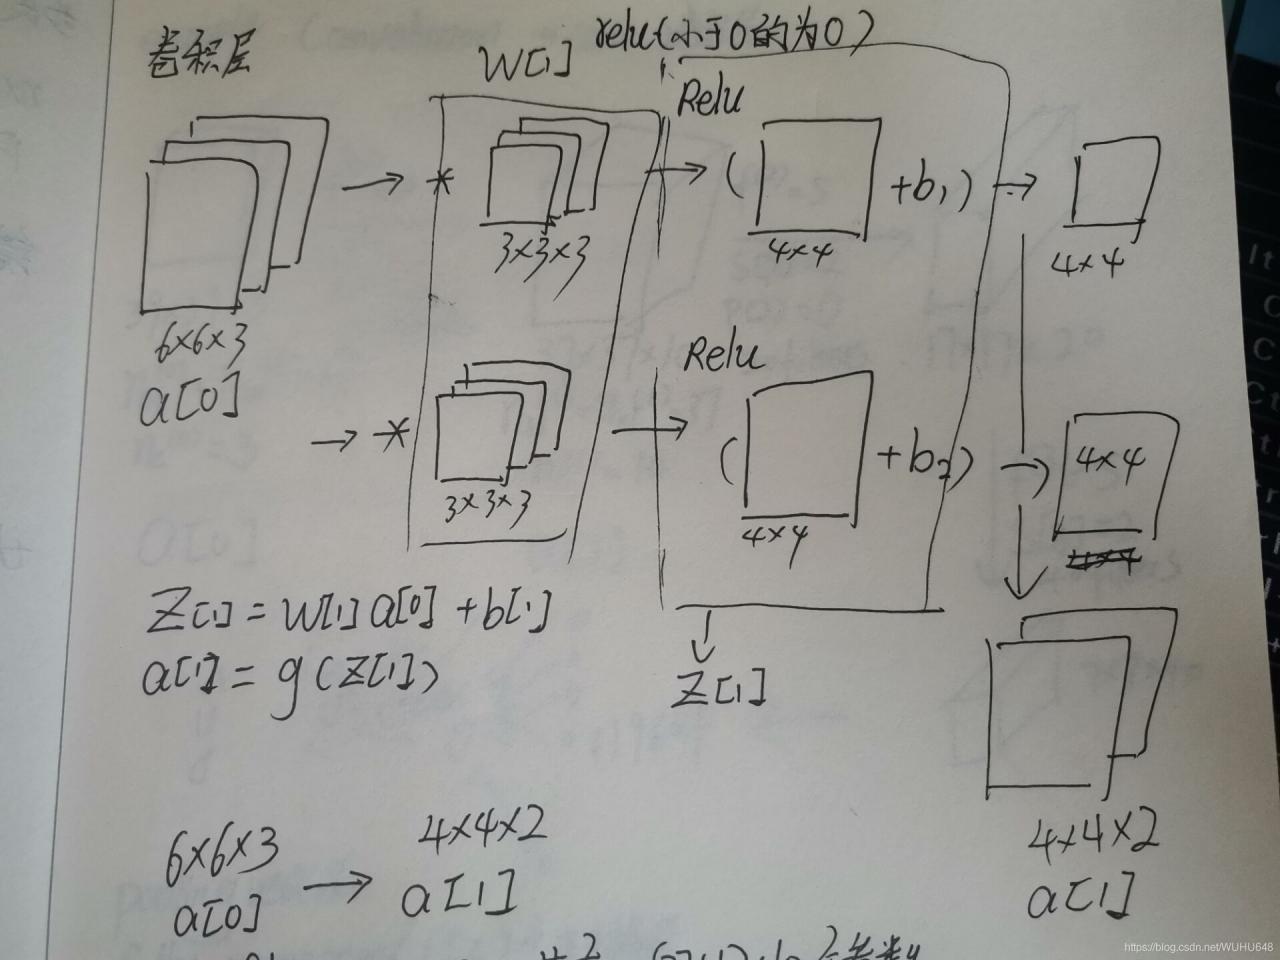 卷积层
W[1]
relu(小于0的为0)
Relu
*
( +b₁)
3×3×3
4×4
4×4
6×6×3
a[0]
Relu
*
( +b₂)
4×4
3×3×3
4×4
Z[1] = W[1] a[0] + b[1]
a[1] = g(Z[1])
Z[1]
6×6×3
4×4×2
4×4×2
a[0]
a[1]
a[1]
https://blog.csdn.net/WUHU648